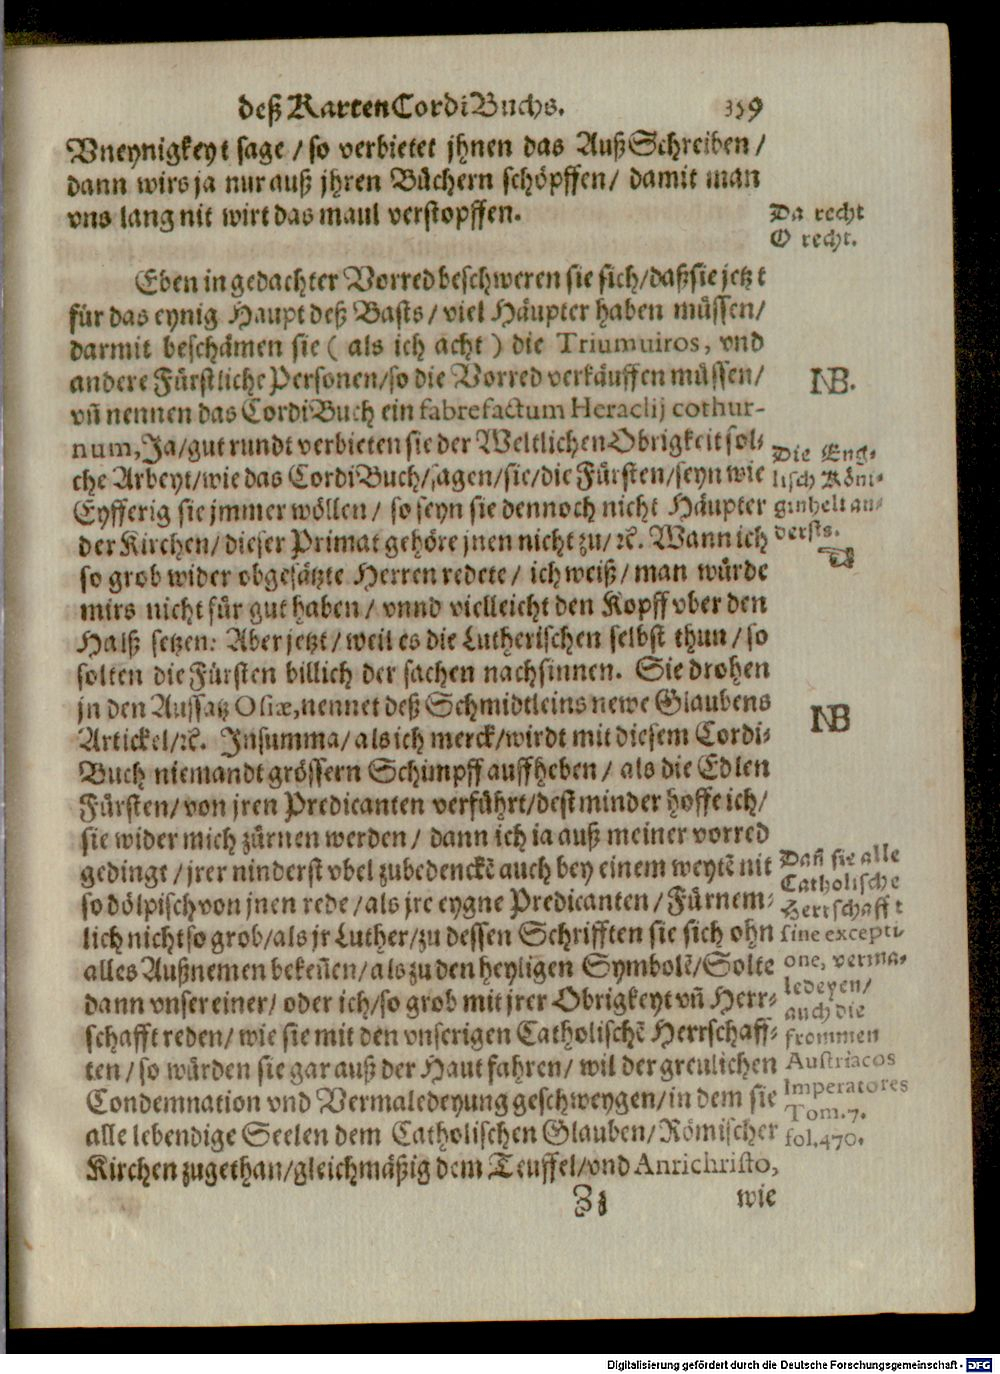 deß KartenCordiBuchs. 359
Vneynigkeyt sage / so verbietet jhnen das AußSchreiben /
dann wirs ja nur auß jhren Büchern schöpffen / damit man
vns lang nit wirt das maul verstopffen.
Da recht
O recht.
Eben in gedachter Vorred beschweren sie sich/ daß sie jetzt
für das eynig Haupt deß Basts / viel Häupter haben müssen/
darmit beschämen sie ( als ich acht ) die Triumuiros, vnd
andere Fürstliche Personen/so die Vorred verkäuffen müssen/
vñ nennen das CordiBuch ein fabrefactum Heraclij cothur-
num, Ja/gut rundt verbieten sie der Weltlichen Obrigkeit sol-
che Arbeyt/wie das CordiBuch/sagen/sie/die Fürsten/seyn wie
Eyfferig sie jmmer wöllen / so seyn sie dennoch nicht Häupter
der Kirchen/ dieser Primat gehöre jnen nicht zu/ ꝛc. Wann ich
so grob wider obgesätzte Herren redete / ich weiß / man würde
mirs nicht für gut haben / vnnd vielleicht den Kopff vber den
Halß setzen: Aber jetzt / weil es die Lutherischen selbst thun / so
solten die Fürsten billich der sachen nachsinnen. Sie drohen
jn den Aussatz Osiæ, nennet deß Schmidtleins newe Glaubens
Artickel/ꝛc. Insumma/ als ich merck/wirdt mit diesem Cordi-
Buch niemandt grössern Schimpff auffheben / als die Edlen
Fürsten/ von jren Predicanten verführt/dest minder hoffe ich/
sie wider mich zürnen werden / dann ich ia auß meiner vorred
gedingt / jrer ninderst vbel zubedenckē auch bey einem weytē nit
so dölpisch von jnen rede / als jre eygne Predicanten / Fürnem-
lich nicht so grob/als jr Luther/zu dessen Schrifften sie sich ohn
alles Außnemen bekeñen/als zu den heyligen Symbolē/Solte
dann vnser einer/ oder ich/so grob mit jrer Obrigkeyt vñ Herr-
schafft reden/ wie sie mit den vnserigen Catholischē Herrschaff-
ten / so würden sie gar auß der Haut fahren / wil der greulichen
Condemnation vnd Vermaledeyung geschweygen/in dem sie
alle lebendige Seelen dem Catholischen Glauben/ Römischer
Kirchen zugethan/gleichmäßig dem Teuffel/vnd Antichristo,
NB.
Die Eng-
lisch Köni-
ginhelt an-
dersts.
☜
NB
Dañ sie alle
Catholische
Herrschafft
sine excepti-
one, verma-
ledeyen/
auch die
frommen
Austriacos
Imperatores
Tom. 7.
fol. 470.
Zz
wie
Digitalisierung gefördert durch die Deutsche Forschungsgemeinschaft - DFG